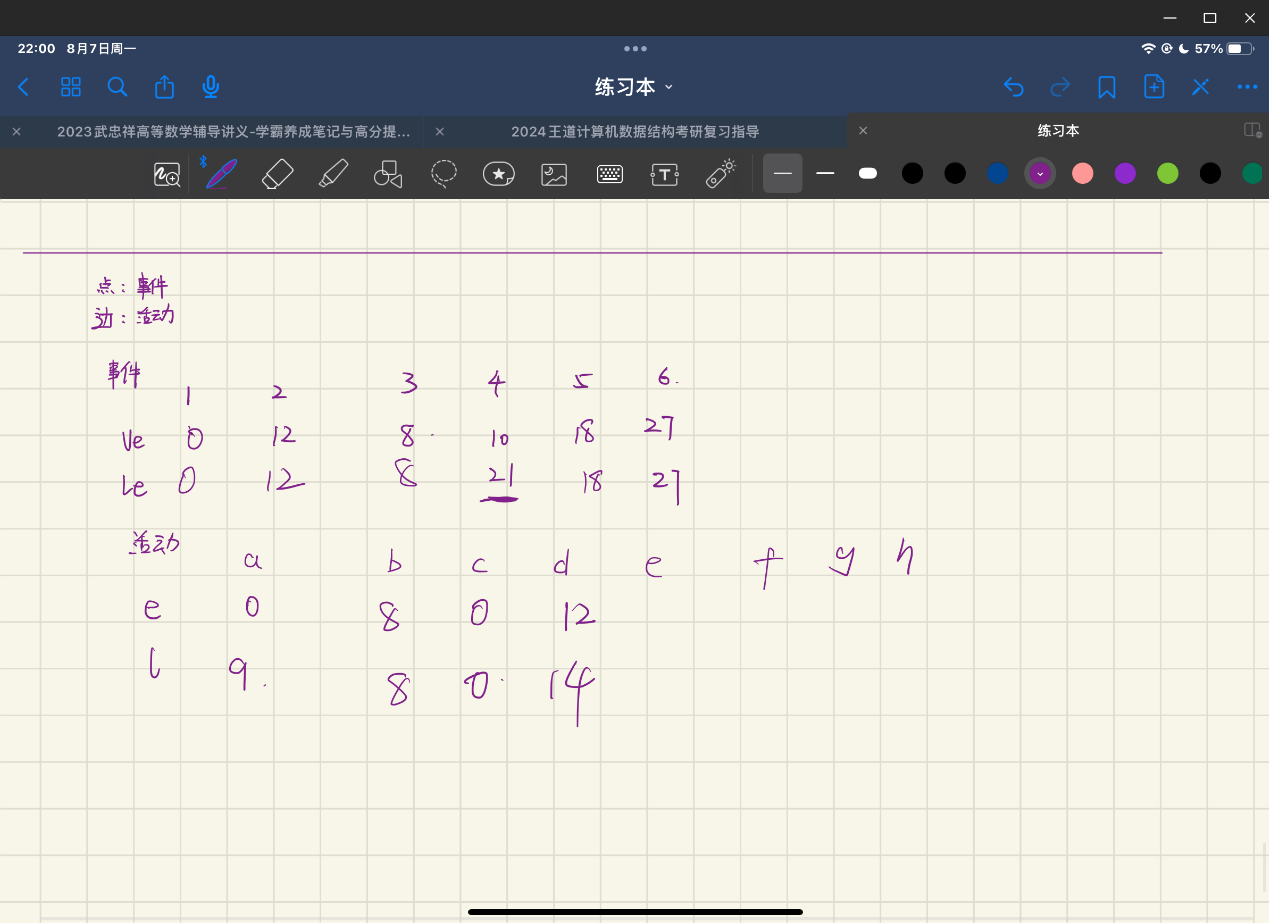 22:00 8月7日周一
57%
练习本
2023武忠祥高等数学辅导讲义-学霸养成笔记与高分提...
2024王道计算机数据结构考研复习指导
练习本
点：事件
边：活动
事件 1 2 3 4 5 6.
Ve 0 12 8 10 18 27
Le 0 12 8 21 18 27
活动 a b c d e f g h
e 0 8 0 12
l 9. 8 0 14